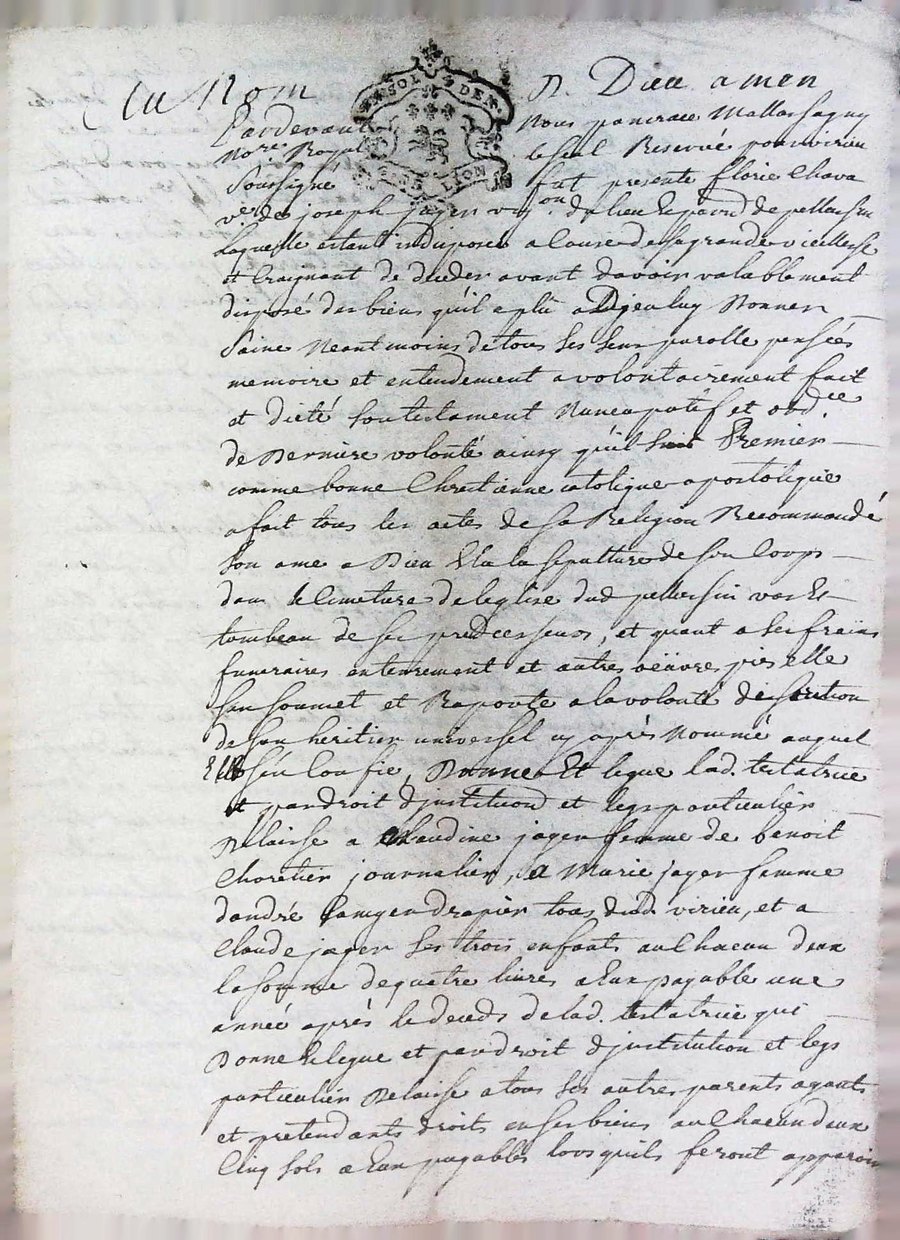 Au Nom D. Dieu amen
SOL DEN
LYON
Pardevant Nous pancrace Mallassagny
Nore. Royal le seul Reservé pour virieu
Soussigné fut presente florie Chava
vve. de joseph jager vig.on du lieu et parr. de pellussin
Laquelle estant indisposeé a Cause de sa grande vieillesse
et Craignant de deceder avant davoir valablement
disposé des biens quil a plû a Dieu luy Donner
Saine Neantmoins de tous ses sens parolle penseés
memoire et entendement a volontairement fait
et dicté son testament Nuncupatif et ord.ce
de Derniere volonté ainsy quil suit Premier
comme bonne Chrestienne catolique apostolique
a fait tous les actes de sa Religion Recommandé
Son ame a Dieu Elu la sepulture de son Corps
dans le Cimetiere de leglise dud. pellussin vas et
tombeau de ses predecesseurs, et quant a ses frais
funeraires enterrement et autres oëuvres pies elle
sen soumet et Raporte a la volonté discretion
de son heritier universel cy après Nommé auquel
Elle sén Confie, Donne Et legue lad. testatrice
et par droit djnstitution et legs particulier
Delaisse a Claudine jager femme de benoit
Choretier journalier, a Marie jager femme
dandré drapier tous dud. virieu, et a
Claude jager ses trois enfants a un Chacun deux
la somme de quatre livres a Eux payable une
anneé après le deceds de lad. testatrice qui
Donne et legue et par droit djnstitution et legs
particulier Delaisse a tous ses autres parents ayants
et pretendants droits en ses biens a un Chacun deux
Cinq sols a Eux payables lors quils feront apparoir